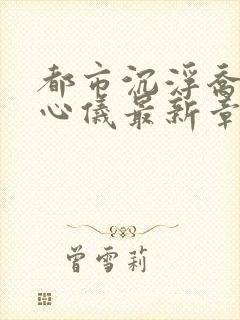 都市沉浮乔
心仪最新章
曾雪莉